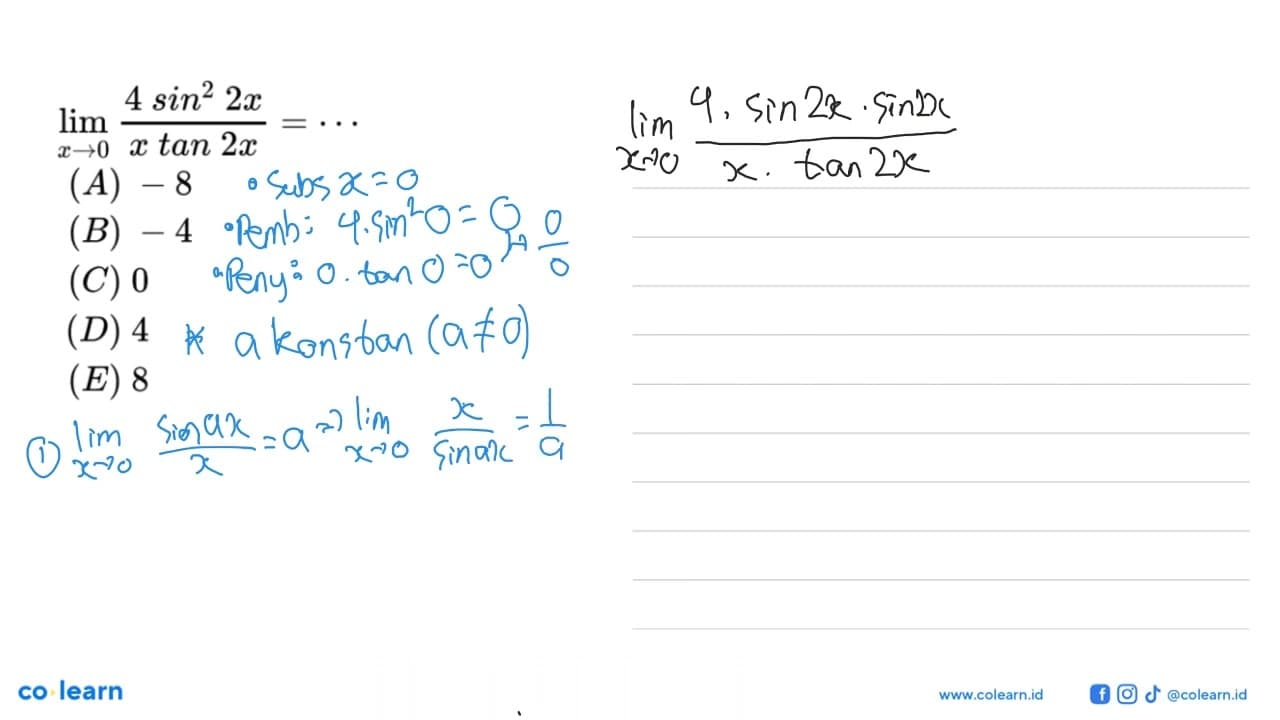 lim x→0 4 sin² 2x / x tan 2x = ⋯
(A) − 8
(B) − 4
(C) 0
(D) 4
(E) 8
• Subs x = 0
• Pemb: 4. sin² 0 = 0 ↦ 0/0
• Peny: 0. tan 0 = 0
* a konstan (a ≠ 0)
① lim x→0 sin ax / x = a ⇒ lim x→0 x / sin ax = 1/a
lim x→0 4. sin 2x . sin 2x / x. tan 2x
co learn
www.colearn.id
@colearn.id